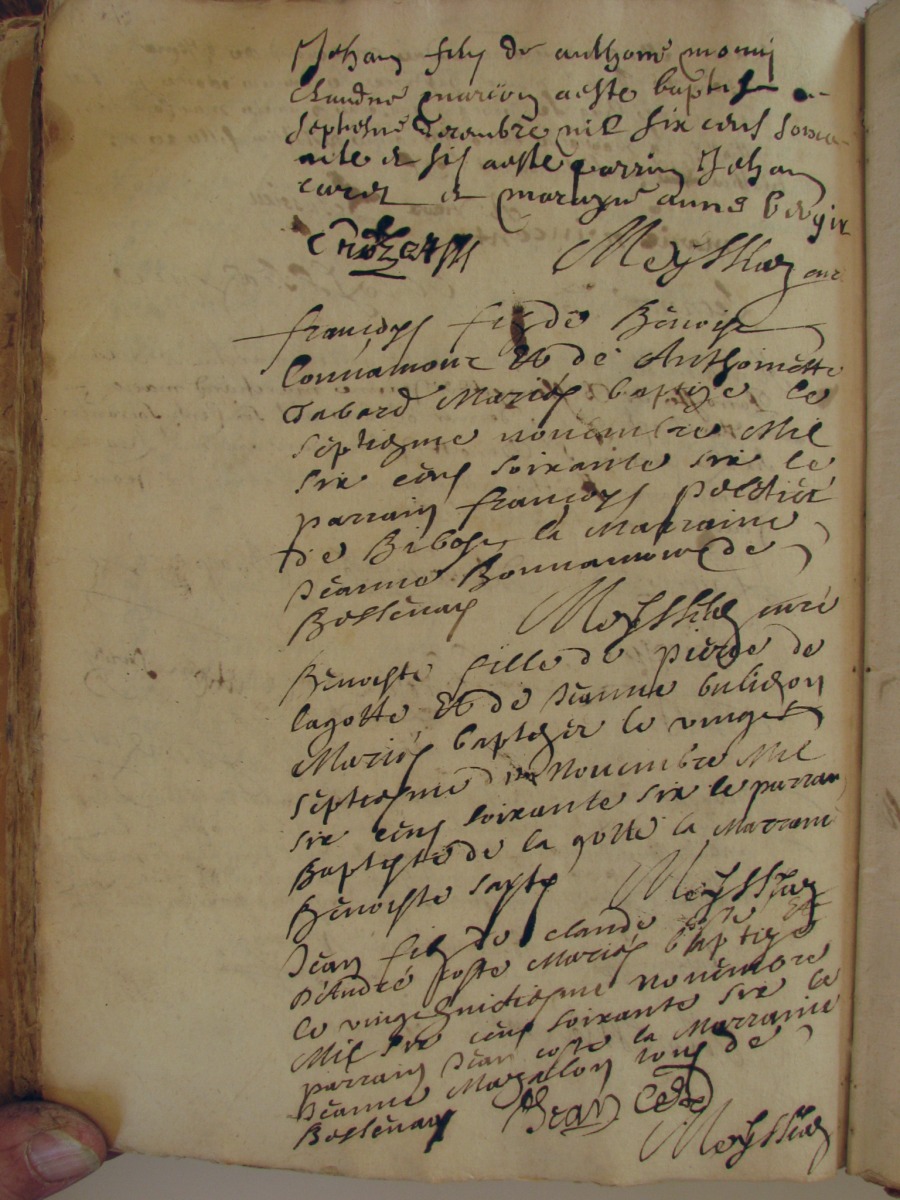 Jehan fils de anthoine
Claudne marion a este baptise
Septiesme decembre mil six cens soixa-
nte et six a este parrin Jehan
et marayne anne
Meyssin curé
françoys fils de Benoist
bonnamour Et de Anthoinette
Tabard Mariés baptizé le
septiesme nouembre Mil
six cens soixante six le
parrain françoys
de Bibost la Marraine
Jeanne Bonnamour de
Bessenay Meyssin curé
Benoiste fille de pierre de
lagotte Et de Jeanne
Mariés baptizée le vingt
septiesme de Nouembre Mil
six cens soixante six le parrain
Baptiste de la gotte la Marraine
Benoiste Meyssin
Jean fils de claude coste Et
d'André coste Mariés baptizé
le vingthuictiesme nouembre
Mil six cens soixante six le
parrain Jean coste la Marraine
Jeanne tous de
Bessenay Jean
Meyssin